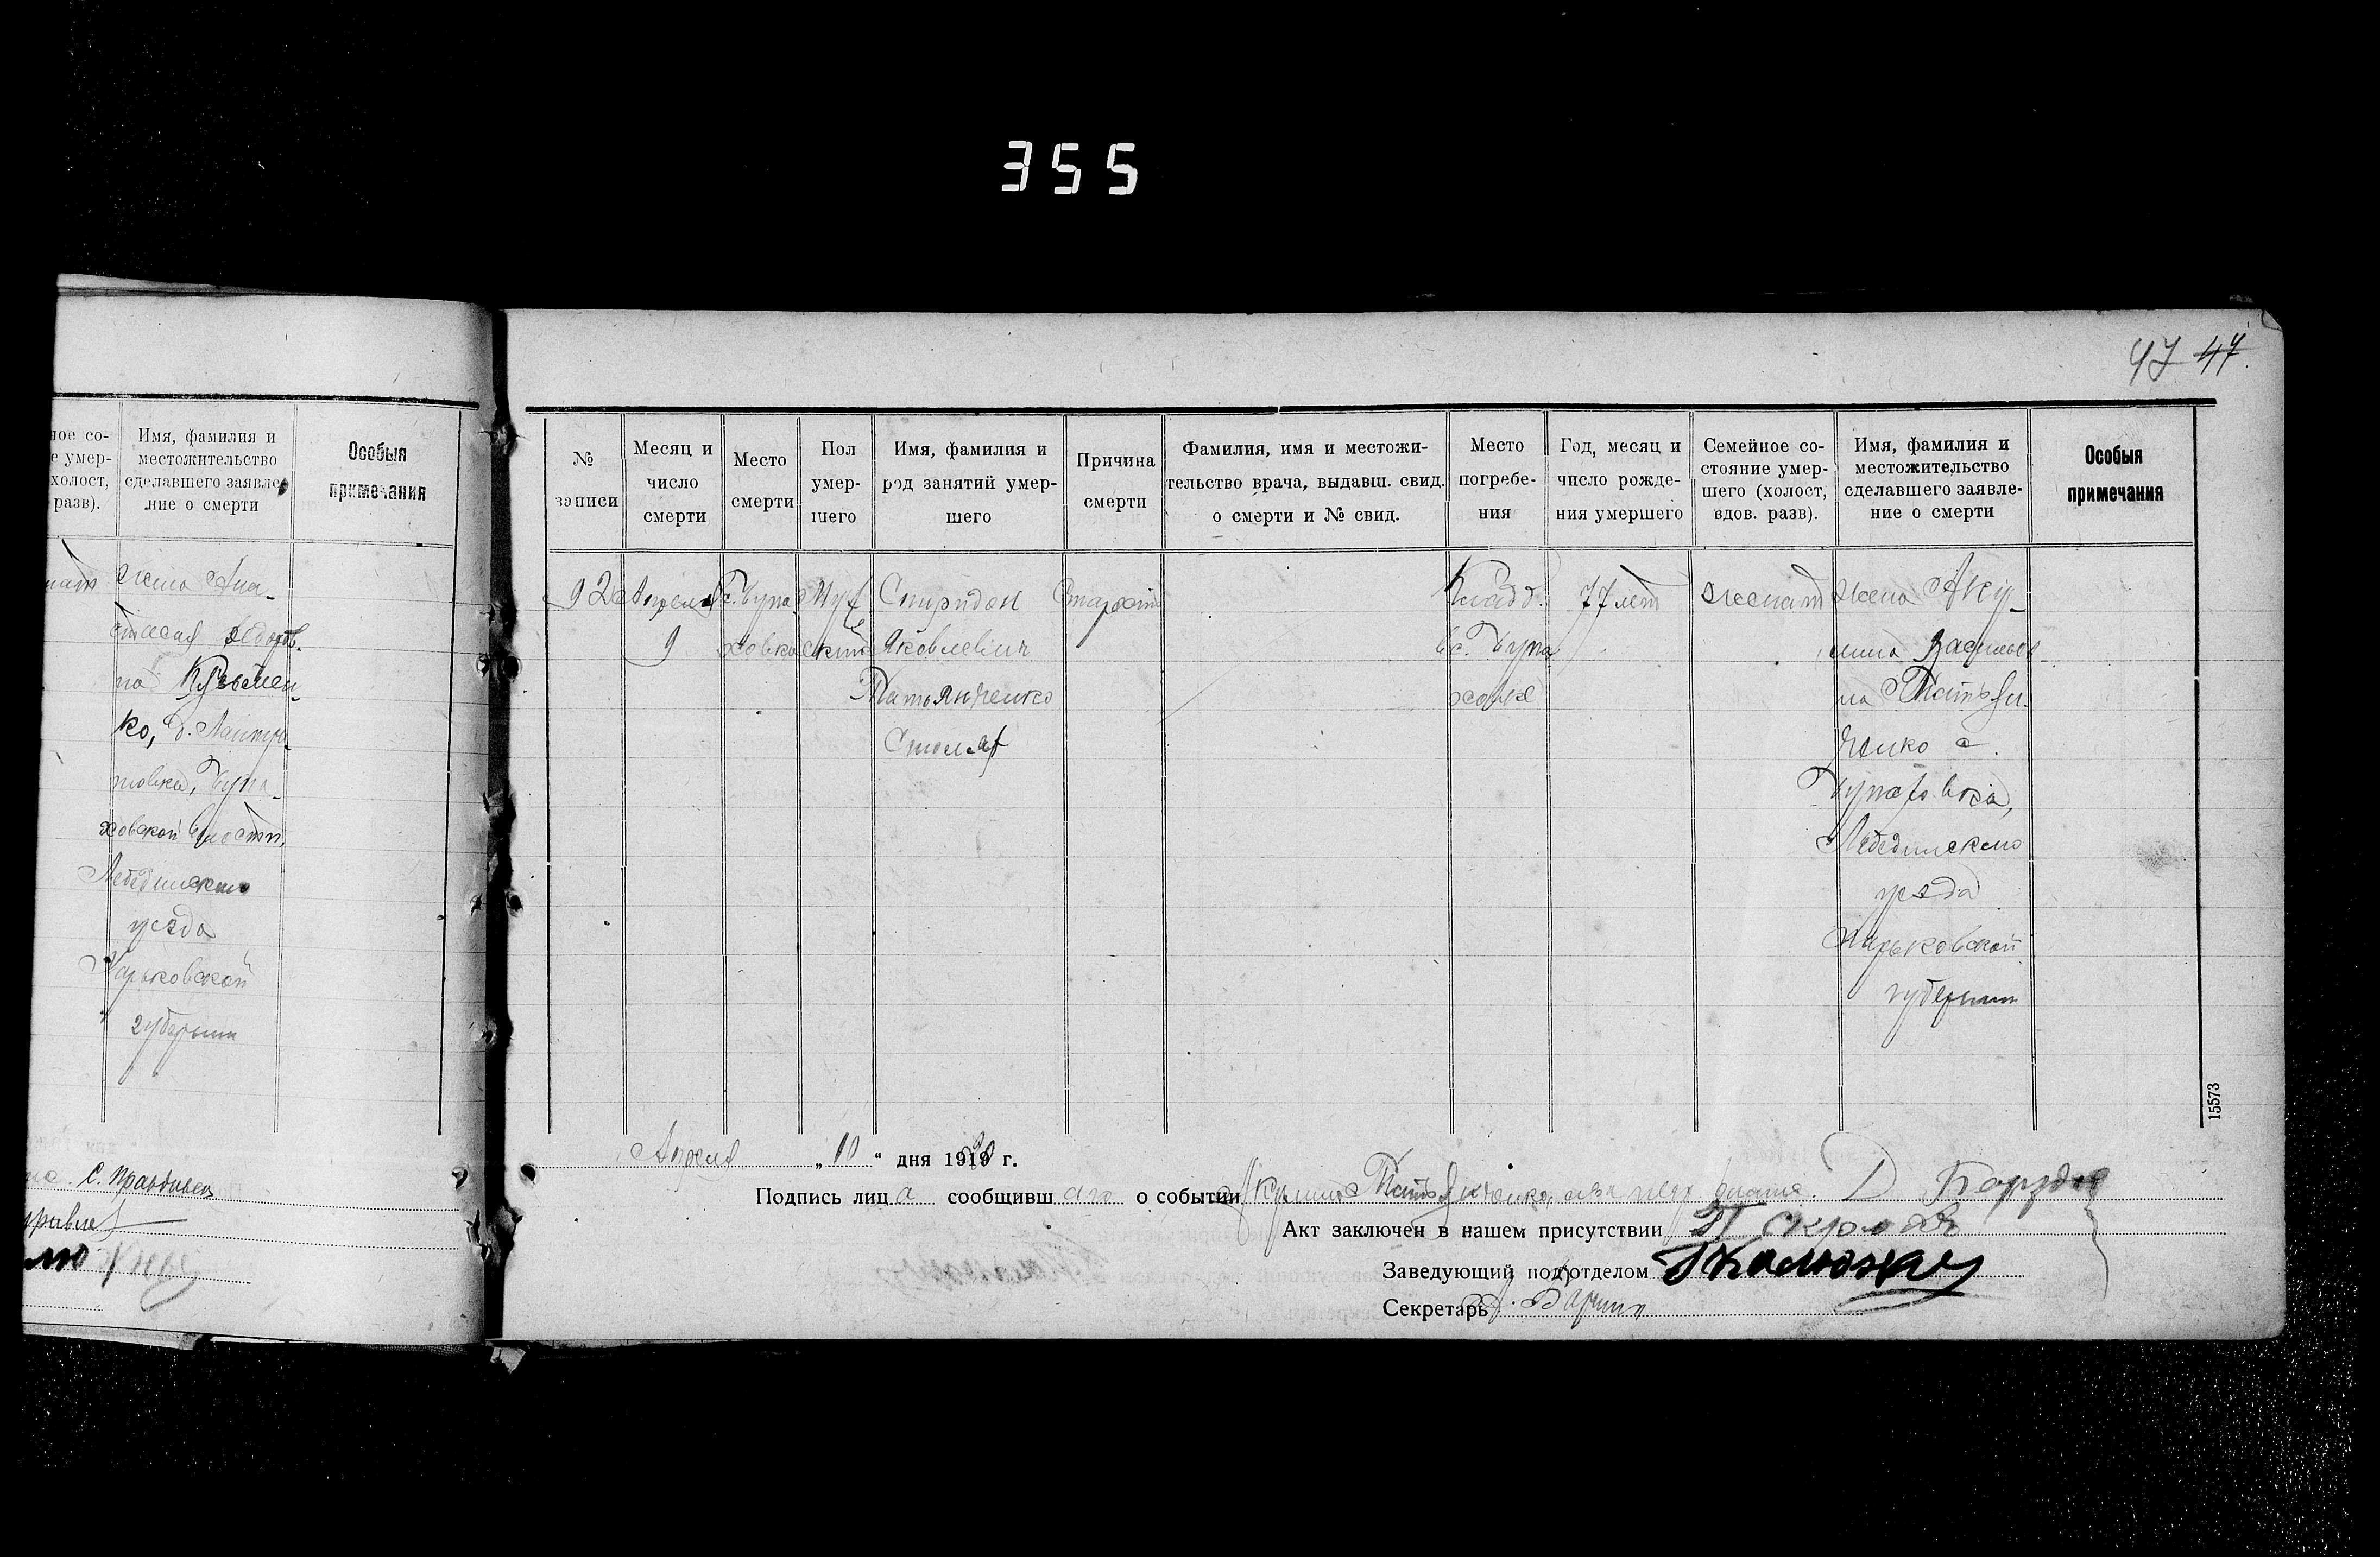 355
47 47.
ное со-
е умер-
холост,
разв).
Имя, фамилия и
местожительство
сделавшего заявле-
ние о смерти
Особыя
примечания
жена Ана-
стасия Федоров.
на Кузьмен-
ко,
товка, Бупа-
ховской волости,
Лебединского
уезда
Харьковской
губернии
№
записи
Месяц и
число
смерти
Место
смерти
Пол
умер-
шего
Имя, фамилия и
род занятий умер-
шего
Причина
смерти
Фамилия, имя и местожи-
тельство врача, выдавш. свид.
о смерти и № свид.
Место
погребе-
ния
Год, месяц и
число рожде-
ния умершего
Семейное со-
стояние умер-
шего (холост,
вдов. разв).
Имя, фамилия и
местожительство
сделавшего заявле-
ние о смерти
Особыя
примечания
92
Апреля
9
с. Бупа
ховка
Муж
ский
Спиридон
Яковлевич
Татьянченко
Столяр
Старость
Кладб.
в с. Бупа
ховке
77 лет
женат
жена Аку-
лина Васильев
на Татьян-
ченко с.
Бупаховка,
Лебединского
уезда
Харьковской
губернии
15573
Апреля „10“ дня 1920 г.
Подпись лица сообщивш о событии Акулина Татьянченко
Акт заключен в нашем присутствии
Заведующий под отделом
Секретарь